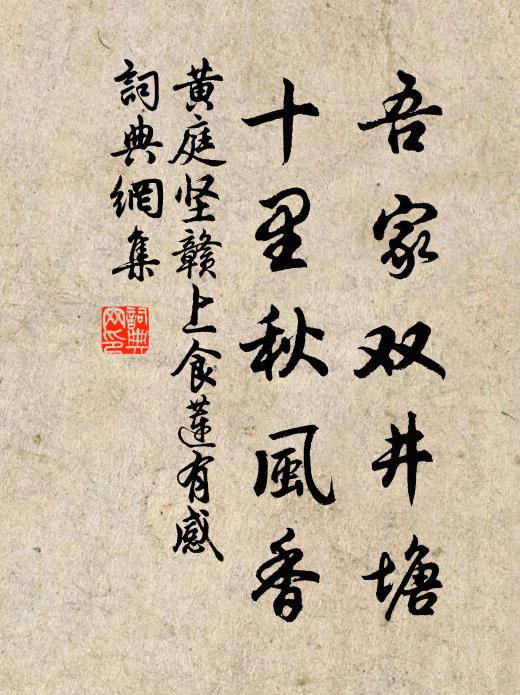 吾家双井塘
十里秋風香
黄庭坚贛上食蓮有感
詞典網集
詞典網印